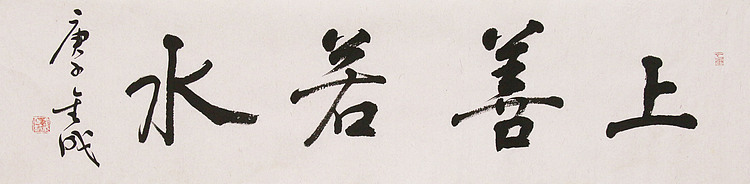 上善若水
庚子
金成